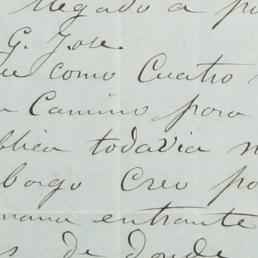 llegado a
G. Jose.
como Cuatro
Camino para
blica todavia
bargo Creo po
mana entrante
de donde